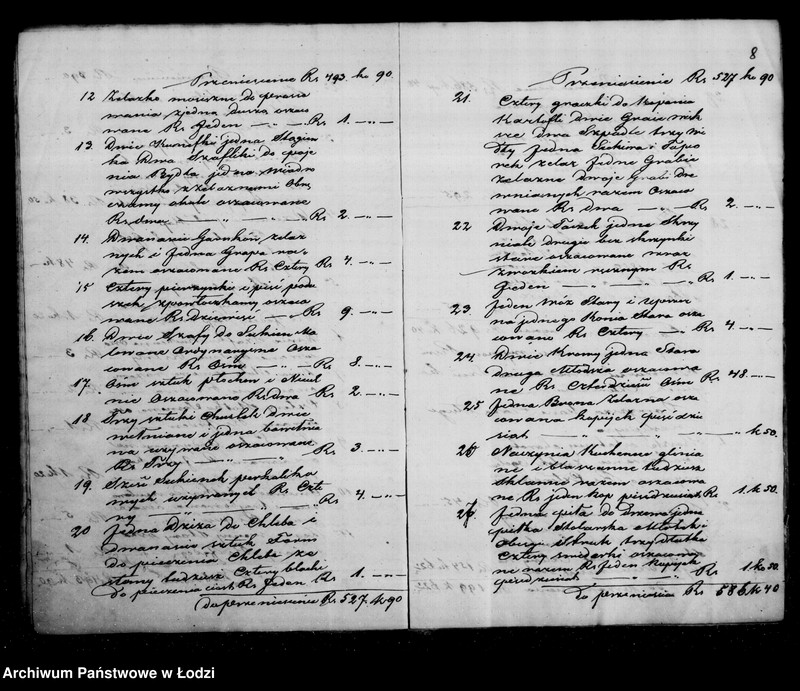 Przeniesienie Rs 493. ko 90.
12 Żelazko mosiężne do prasowa
wania z jedną duszą oszaco
wane Rs Jeden — „ — Rs 1. — „ —
13. Dwie Kunefki jedna Stagiew
ka Dwa Szafliki do poje
nia Bydła jedno wiadro
wszystko z żelaznemi Obrę
czamy oszacowane
Rs dwa — „ — „ — Rs 2. — „ —
14. Dwanaście Garnków żelaz
nych i jedna Grapa ra
zem oszacowane Rs Cztery Rs 4. — „ —
15 Cztery pierzynki i pięć podu
szek oszaco
wane Rs Dziewięć — „ Rs 9. — „ —
16. Dwie Szafy do Sukien Ma
lowane Ordynaryjne Osza
cowane Rs Ośm — „ — Rs 8. — „ —
17. Ośm sztuk
Oszacowano Rs Dwa Rs 2. — „ —
18 Trzy sztuki Chustek dwie
wełniane i jedna bawełnia
na używane oszacowane
Rs Trzy — „ — „ — Rs 3. — „ —
19. Sześć Sukienek perkaliko
wych używanych Rs Czte
ry — „ — „ — Rs 4. — „ —
20 Jedna Dzieża do Chleba i
Dwanaście sztuk Form
do pieczenia Chleba ze
słomy tudzież Cztery blachy
do pieczenia ciast Rs Jeden Rs 1. — „ —
do przeniesienia Rs 527. ko 90
8
Przeniesienie Rs 527 ko 90
21. Cztery graczki do kopania
Kartofli dwie
dwa Szpadle trzy wi
dły Jedna Siekiera i Topo
rek żelaz Jedne Grabie
żelazne dwoje Grabi dre
wnianych razem Oszaco
wane Rs Dwa — „ — Rs 2. — „ —
22 Dwoje Taczek jedne Skrzy
niaste drugie bez skrzynki
stare oszacowane wraz
z workiem Rs
Jeden — „ — „ — Rs 1. — „ —
23. Jeden Wóz Stary i
na jednego Konia Stare osza
cowano Rs Cztery — „ Rs 4. — „ —
24. Dwie Krowy jedna Stara
druga Młodsza oszacowa
ne Rs Czterdzieści Ośm Rs 48. — „ —
25 Jedna Brona Żelazna osza
cowana kopiejek pięćdzie
siąt — „ — „ — „ — k 50.
26 Naczynia Kuchenne glinia
ne i blaszanne tudzież
szklanne razem oszacowa
ne Rs jeden kop pięćdziesiąt Rs 1. k 50.
27 Jedna piła do Drzewa jedna
piłka Stolarska Młotek i
Obcęgi trzy Dłutka
Cztery świderki oszacowa
ne razem Rs Jeden kopiejek
pięćdziesiąt — „ — Rs 1 ko 50.
do przeniesienia Rs 586 k 40
Archiwum Państwowe w Łodzi